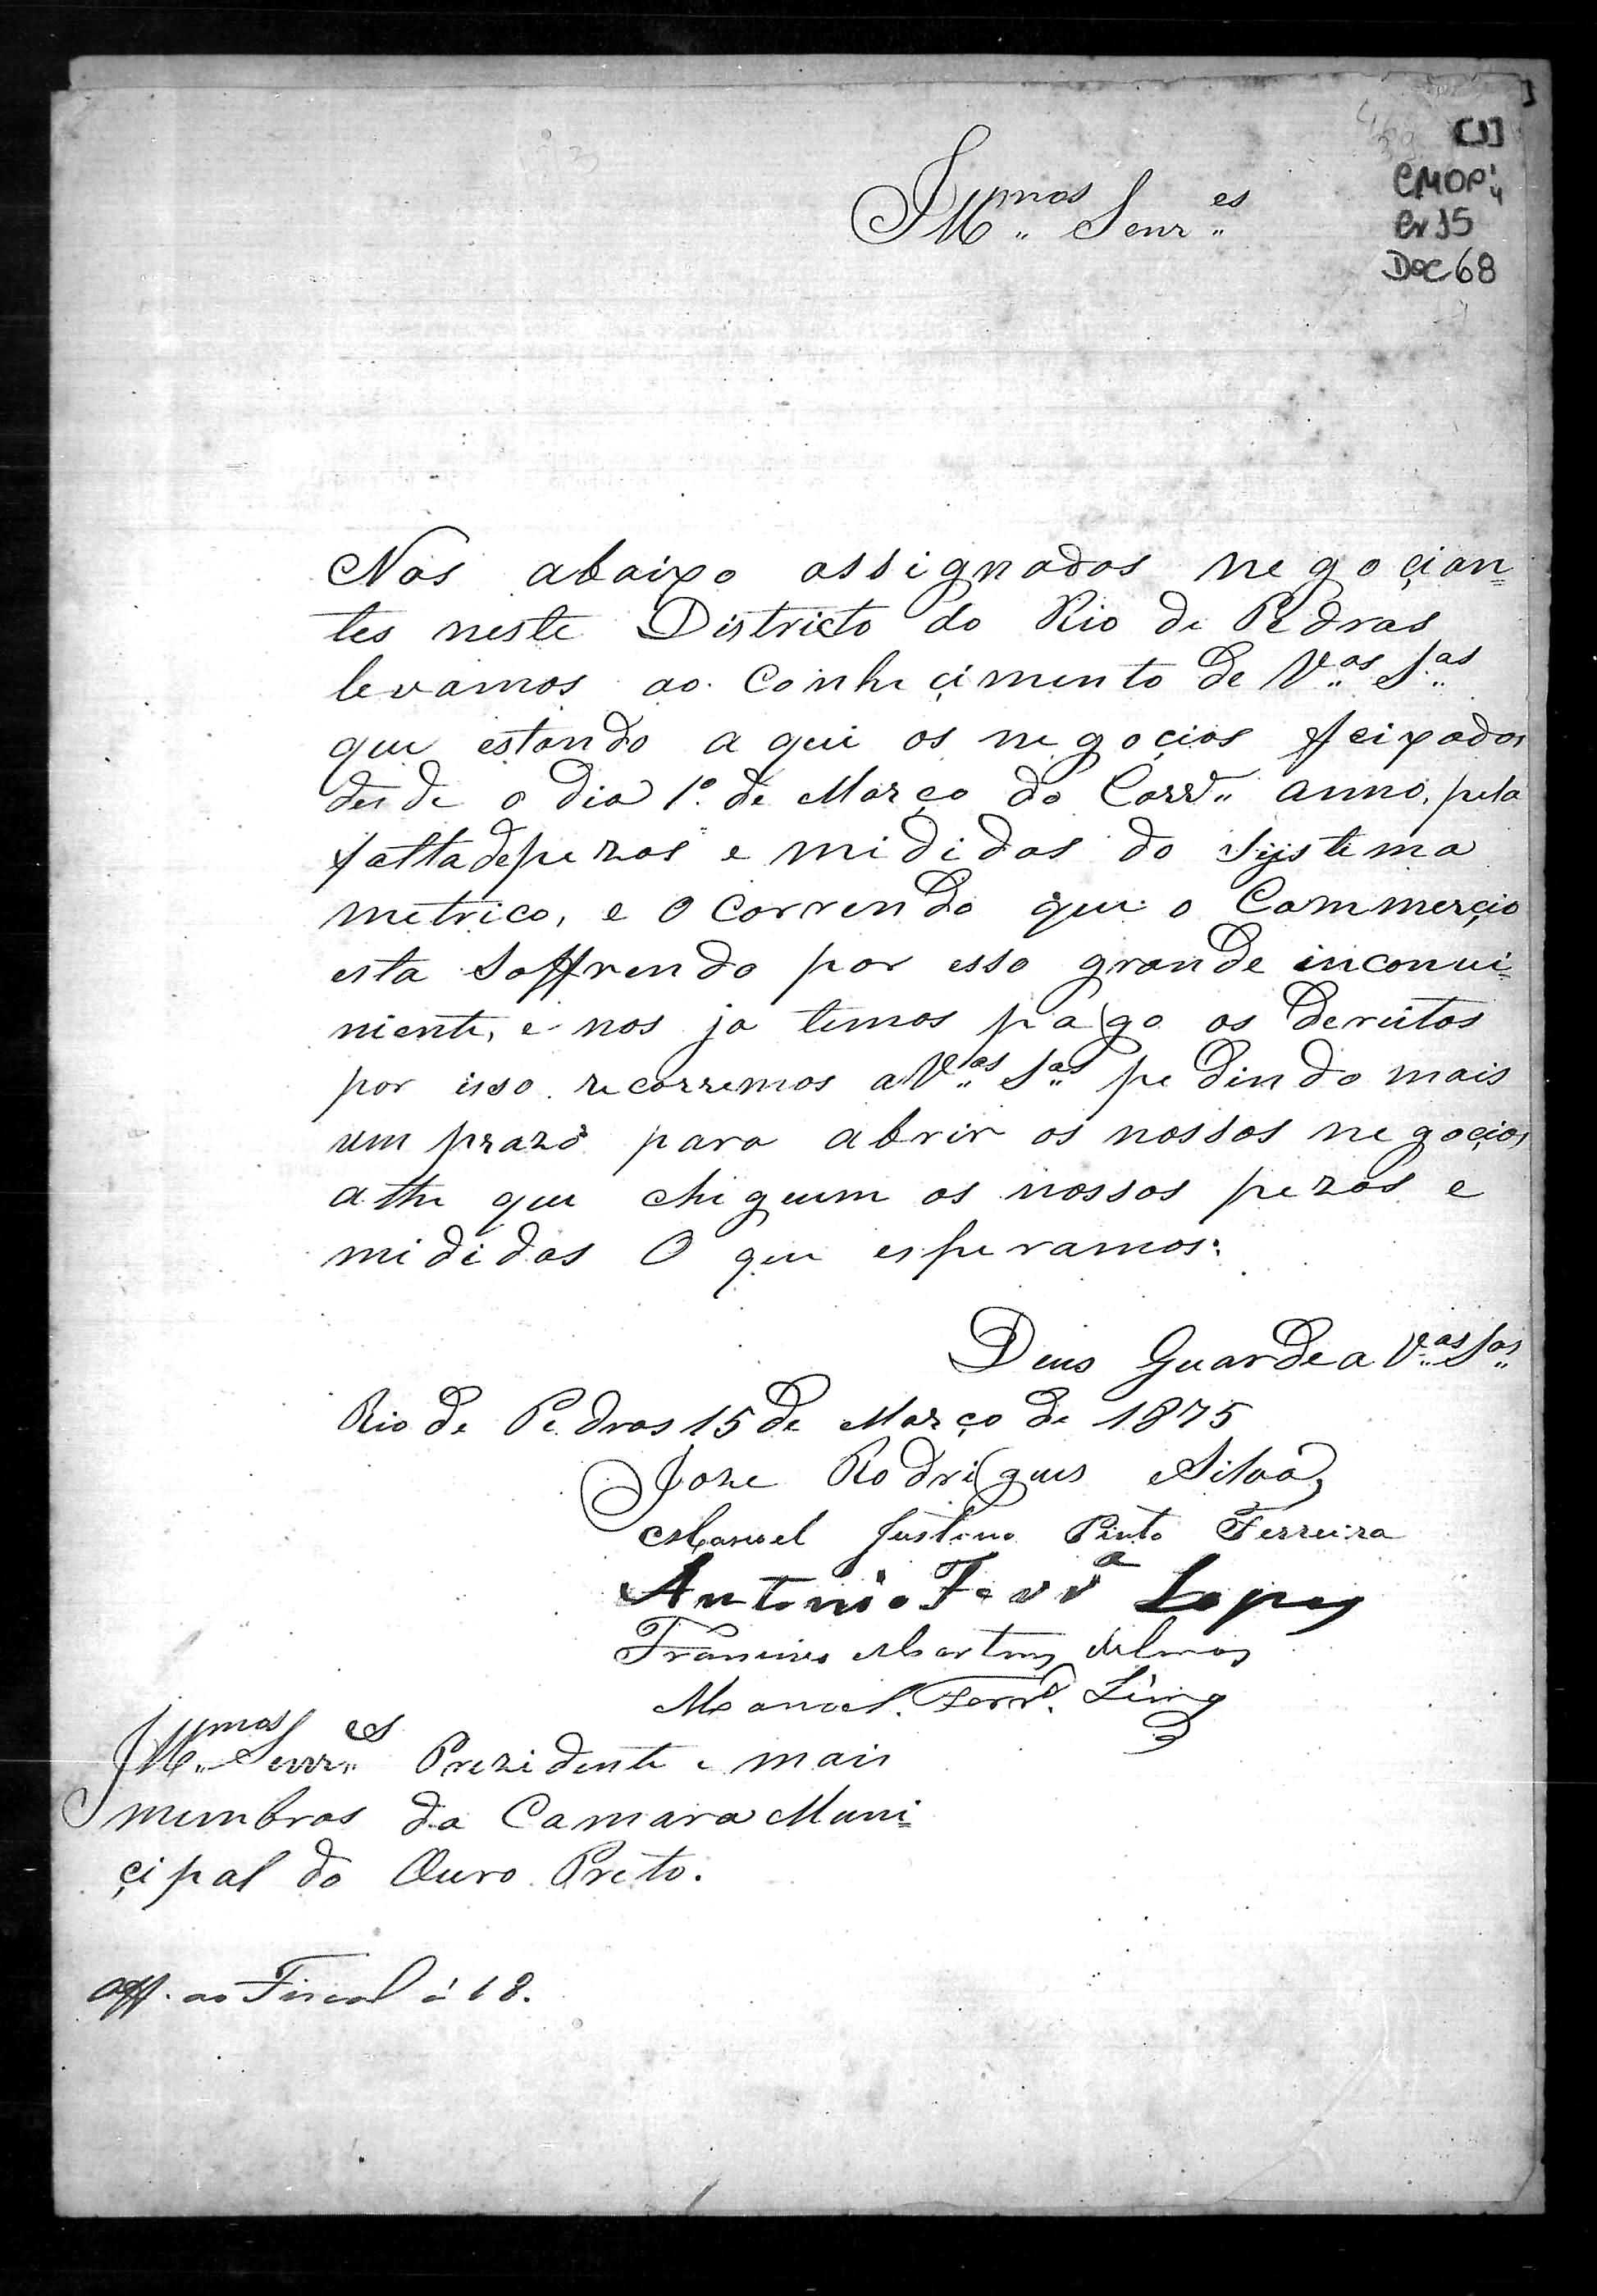 [1]
CMOP
Cx 15
Doc 68
Illmos Senres
Nos abaixo assignados negoçian=
tes neste Districto do Rio de Pedras
levamos ao Conheçimento de Vas Sas
que estando aqui os negoçios feixados
desde o dia 1º de Março do Corre anno, pela
falta de pezos e medidas do Systema
metrico, e Ocorrendo que o Commerçio
esta Soffrendo por esso grande inconvi=
niente, e nos ja temos pago os dereitos
por isso recorremos a Vas Sas pedindo mais
um prazo para abrir os nossos negoçios
athe que cheguem os nossos pezos e
medidas O que esperamos.
Deus Guarde a Vas Sas
Rio de Pedras 15 de Março de 1875
Joze Rodrigues Silva
Manoel Justino Pinto Ferreira
Antonio Ferra Lopes
Francisco Martins
Manoel Ferra Lima
Illmos Senres Prezidente e mais
membros da Camara Muni=
çipal do Ouro Preto.
Off. ao Fiscal á 18.